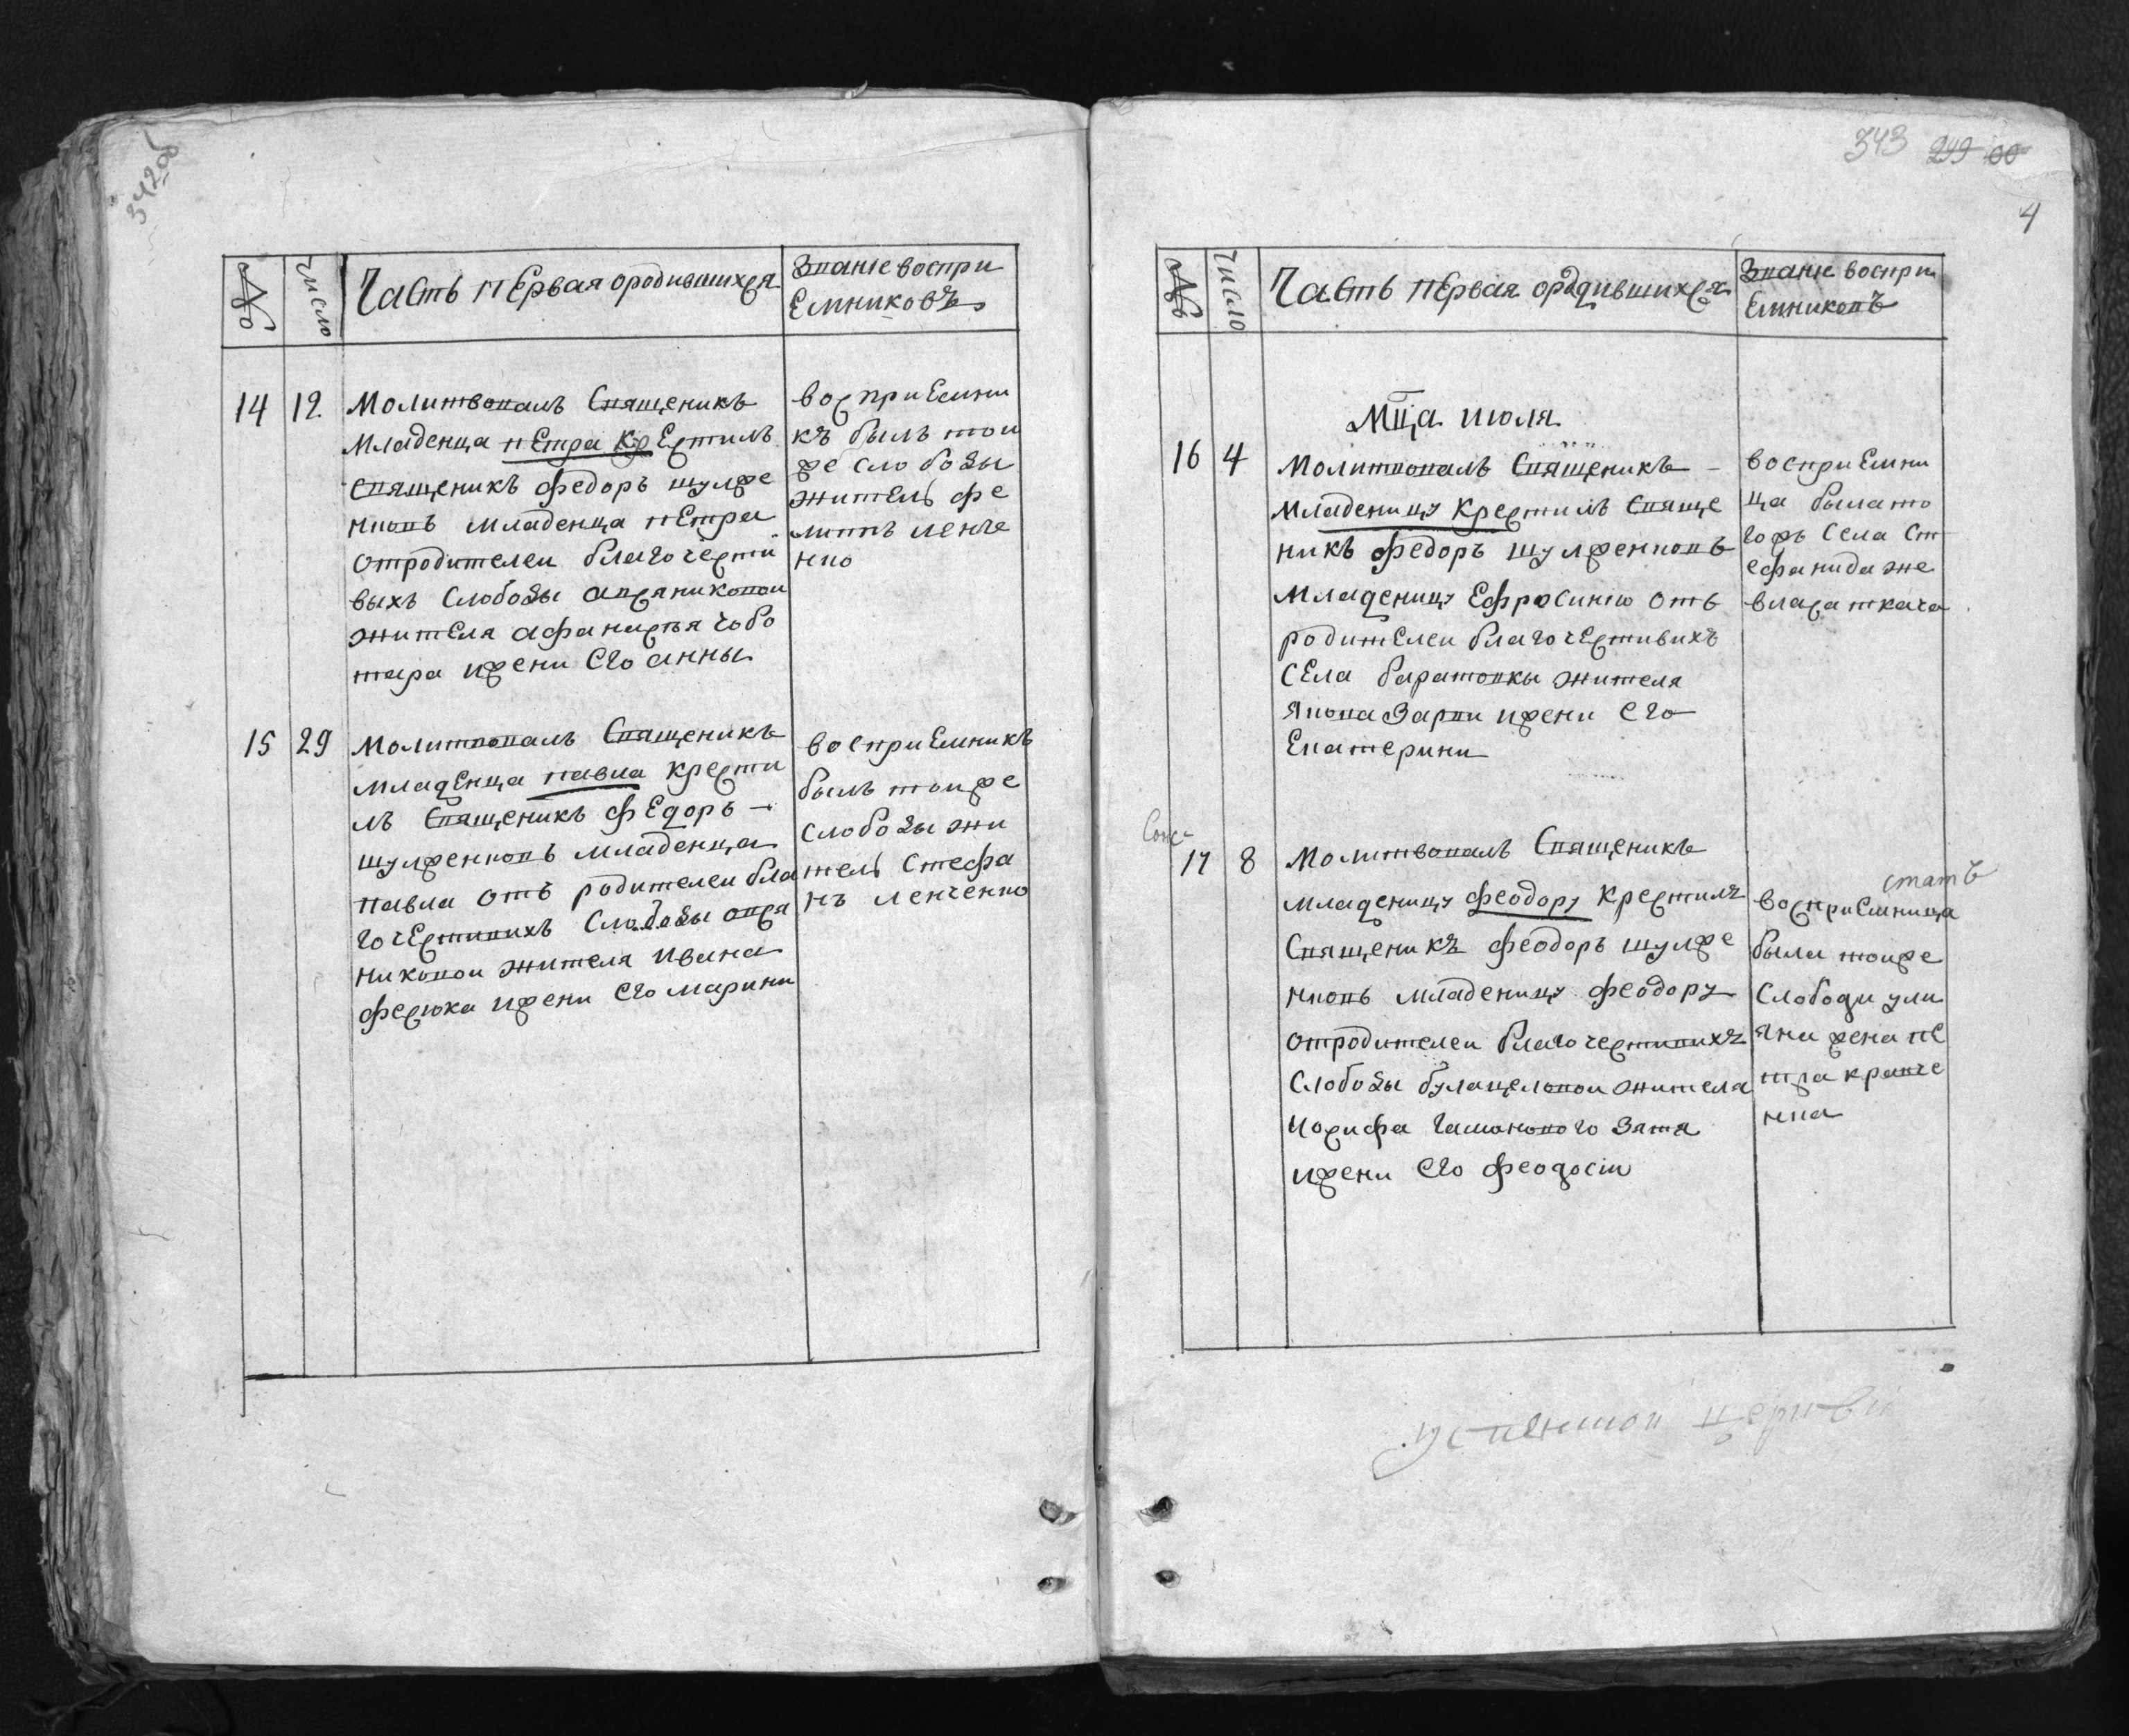 342об
№
Число
Часть первая ородившихся
Знание воспри
Емниковъ
14 12 Молитвовалъ Священикъ
Младенца пЕтра КрЕстилъ
Священикъ Федоръ шулже
нковъ младенца пЕтра
отродителеи благочести
выхъ Слободы
жителя афанасия чобо
тара ижени Его анны
восприЕмни
къ былъ тои
же слободы
житель фе
ленче
нко
15 29 Молитвовалъ Священикъ
Младенца павла крести
лъ Священикъ ФЕдоръ
шулженковъ младенца
павла отъ родителеи бла
гочЕстивихъ Слободы
никовои жителя ивана
ферюка ижени Его марини
восприЕмникъ
былъ тоиже
слободы жи
тель Стефа
нъ ленченко
343 299 00
4
№
Число
Часть пЕрвая ородившихся
Знание воспри
Емниковъ
Мца июля
16 4 Молитвовалъ Священикъ
Младеницу Крестилъ Свяще
никъ Федоръ шулженковъ
Младеницу Ефросинию отъ
родитЕлеи благочЕстивихъ
СЕла баратовки жителя
Якова ижени Его
Екатерини
восприЕмни
ца была то
гожъ Села Ст
ефанида же
ткача
17 8 Молитвовалъ Священикъ
младеницу Феодору Крестилъ
Священикъ Феодоръ шулже
нковъ младеницу Феодору
отродителеи благочестивихъ
Слободы булацеловои жителя
иосифа зятя
ижени Его Феодосiи
статъ
восприЕмница
была тоиже
Слободи ули
яна жена пе
тра кравче
нка
церкви